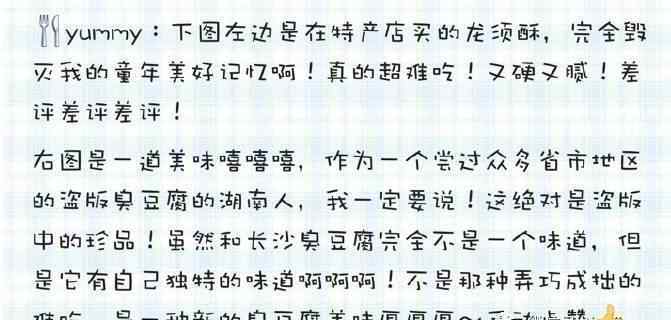 yummy：下图左边是在特产店买的龙须酥，完全毁
灭我的童年美好记忆啊！真的超难吃！又硬又腻！差
评差评差评！
右图是一道美味嘻嘻嘻嘻，作为一个尝过众多省市地区
的盗版臭豆腐的湖南人，我一定要说！这绝对是盗版
中的珍品！虽然和长沙臭豆腐完全不是一个味道，但
是它有自己独特的味道啊啊啊！不是那种弄巧成拙的
难吃，是一种新的臭豆腐美味